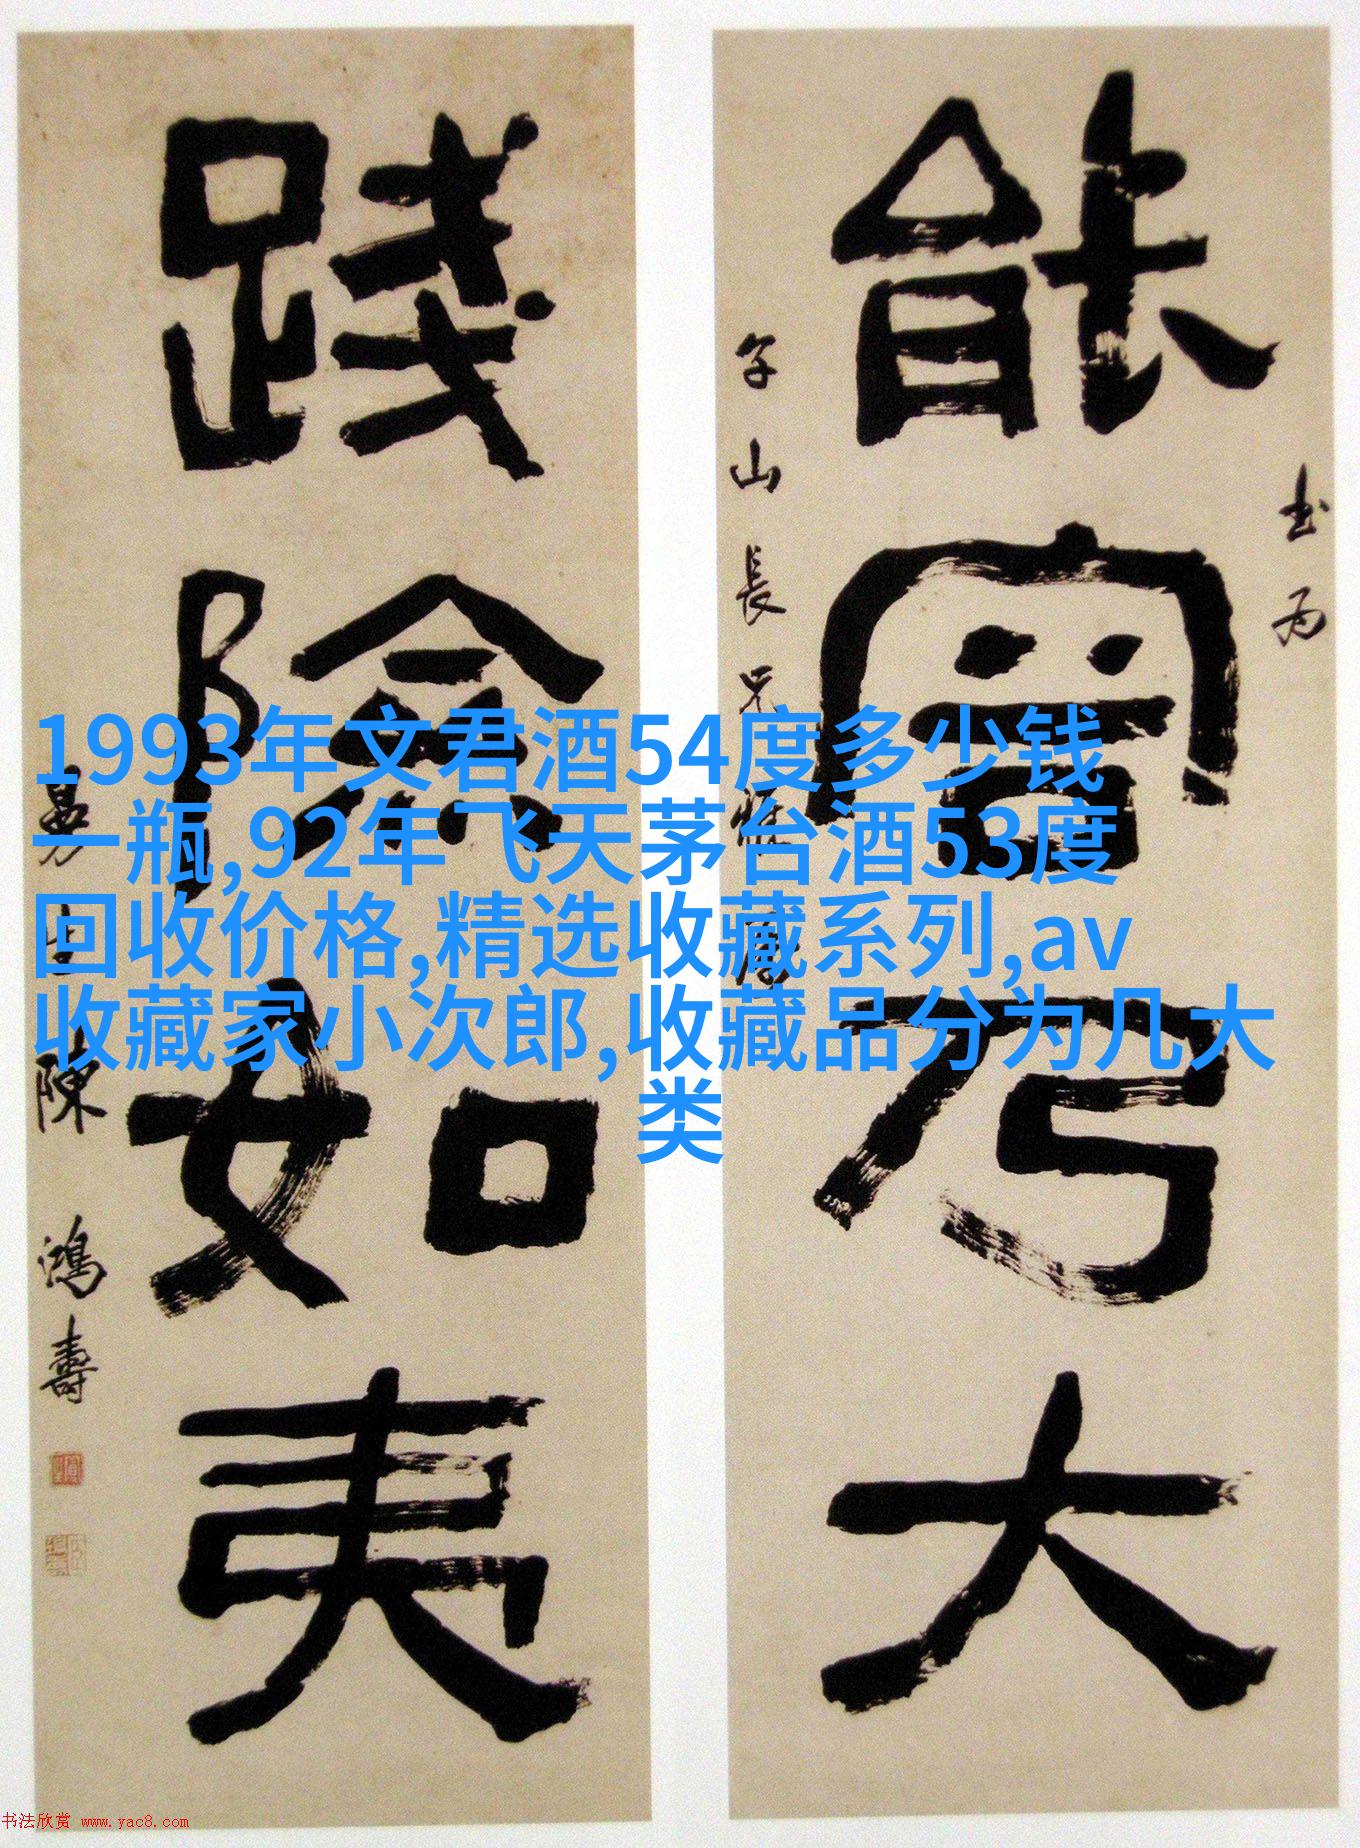 能富乃大
書為
午山長兄雅屬
踐險如夷
曼生陳鴻壽
1993年文君酒54度多少钱
一瓶,92年飞天茅台酒53度
回收价格,精选收藏系列,av
收藏家小次郎,收藏品分为几大
类
书法欣赏 www.yac8.com